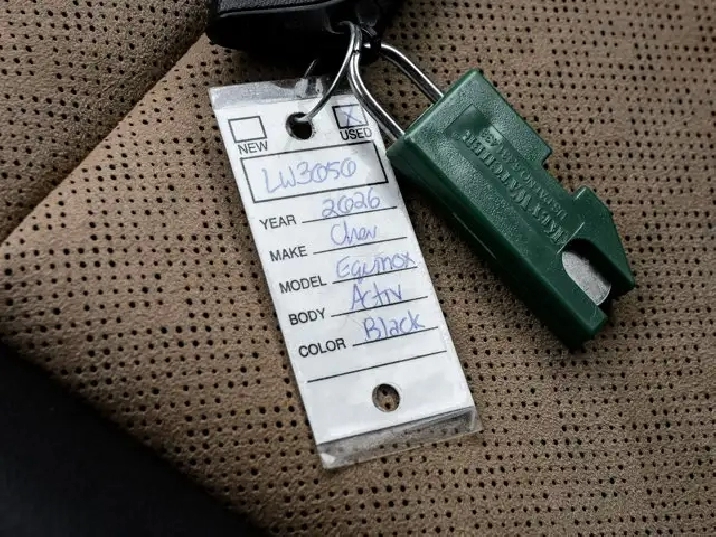 NEW
X
USED
LW3050
YEAR 2026
MAKE Chev
MODEL Equinox
BODY Activ
COLOR Black
KEYWATCHER